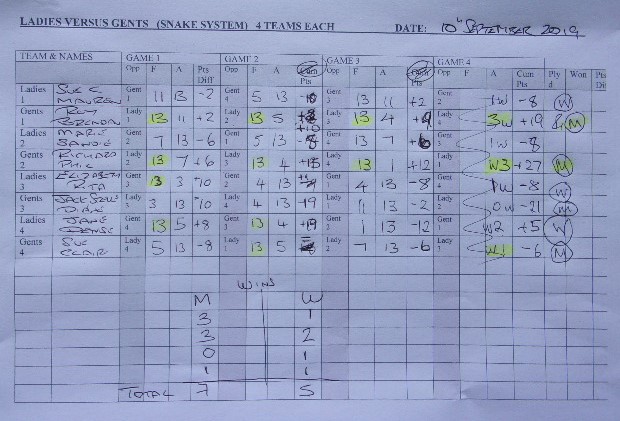 LADIES VERSUS GENTS (SNAKE SYSTEM) 4 TEAMS EACH DATE: 10th SEPTEMBER 2019
TEAM & NAMES GAME 1 GAME 2 GAME 3 GAME 4
Opp F A Pts Diff Opp F A Cum Pts Opp F A Cum Pts Opp F A Cum Pts Ply d Won Pts Di
Ladies 1 SUE C MAUREEN Gent 1 11 13 -2 Gent 4 5 13 Gent 3 13 11 +2 Gent 2 1W -8 W
Gents 1 ROY Lady 1 13 11 +2 Lady 2 13 5 Lady 3 13 4 Lady 4 3W +19 M
Ladies 2 MARIE SANDIE Gent 2 7 13 -6 Gent 1 5 13 Gent 4 13 7 +6 Gent 3 1W -8
Gents 2 RICHARD PHIL Lady 2 13 7 +6 Lady 3 13 4 +15 Lady 4 13 1 +12 Lady 1 W3 +27 M
Ladies 3 ELIZABETH RITA Gent 3 13 3 +10 Gent 2 4 13 Gent 1 4 13 -8 Gent 4 1W -8 W
Gents 3 DIANE Lady 3 3 13 -10 Lady 4 4 13 -19 Lady 1 11 13 -2 Lady 2 0W -21 M
Ladies 4 JANE DENISE Gent 4 13 5 +8 Gent 3 13 4 +19 Gent 2 1 13 -12 Gent 1 W2 +5 W
Gents 4 SUE CLAIR Lady 4 5 13 -8 Lady 1 13 5 Lady 2 7 13 -6 Lady 3 W1 -6 M
WINS
M W
3 1
3 2
0 1
1 1
TOTAL 7 5